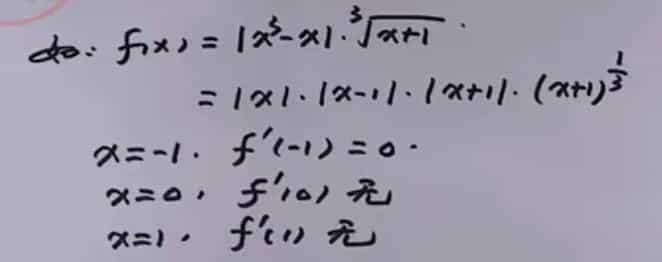 do: f(x) = |x³-x|·∛(x+1)
= |x|·|x-1|·|x+1|·(x+1)^(1/3)
x=-1. f'(-1)=0.
x=0, f'(0) 无
x=1. f'(1) 无